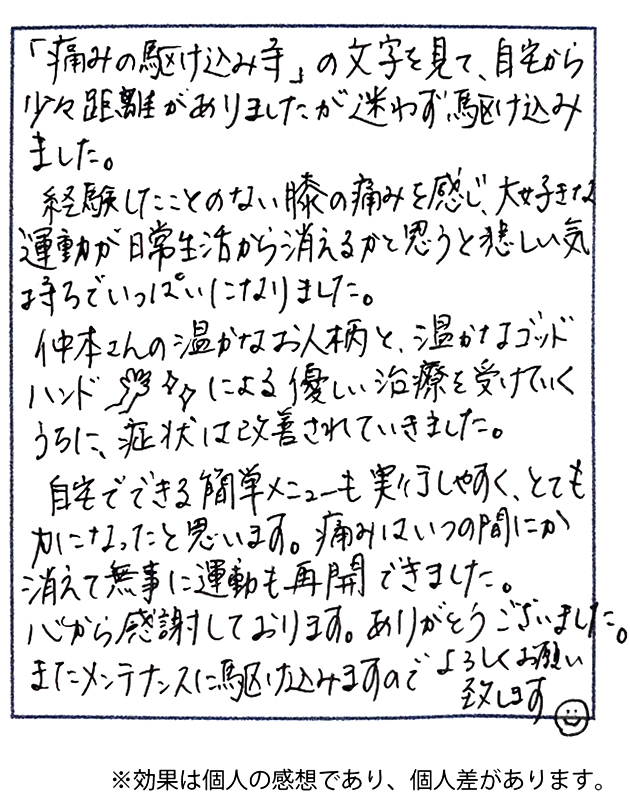 「痛みの駆け込み寺」の文字を見て、自宅から
少々距離がありましたが迷わず駆け込み
ました。
経験したことのない膝の痛みを感じ、大好きな
運動が日常生活から消えるかと思うと悲しい気
持ちでいっぱいになりました。
仲本さんの温かなお人柄と、温かなゴッド
ハンドによる優しい治療を受けていく
うちに、症状は改善されていきました。
自宅でできる簡単メニューも実行しやすく、とても
力になったと思います。痛みはいつの間にか
消えて無事に運動も再開できました。
心から感謝しております。ありがとうございました。
またメンテナンスに駆け込みますのでよろしくお願い
致します
※効果は個人の感想であり、個人差があります。